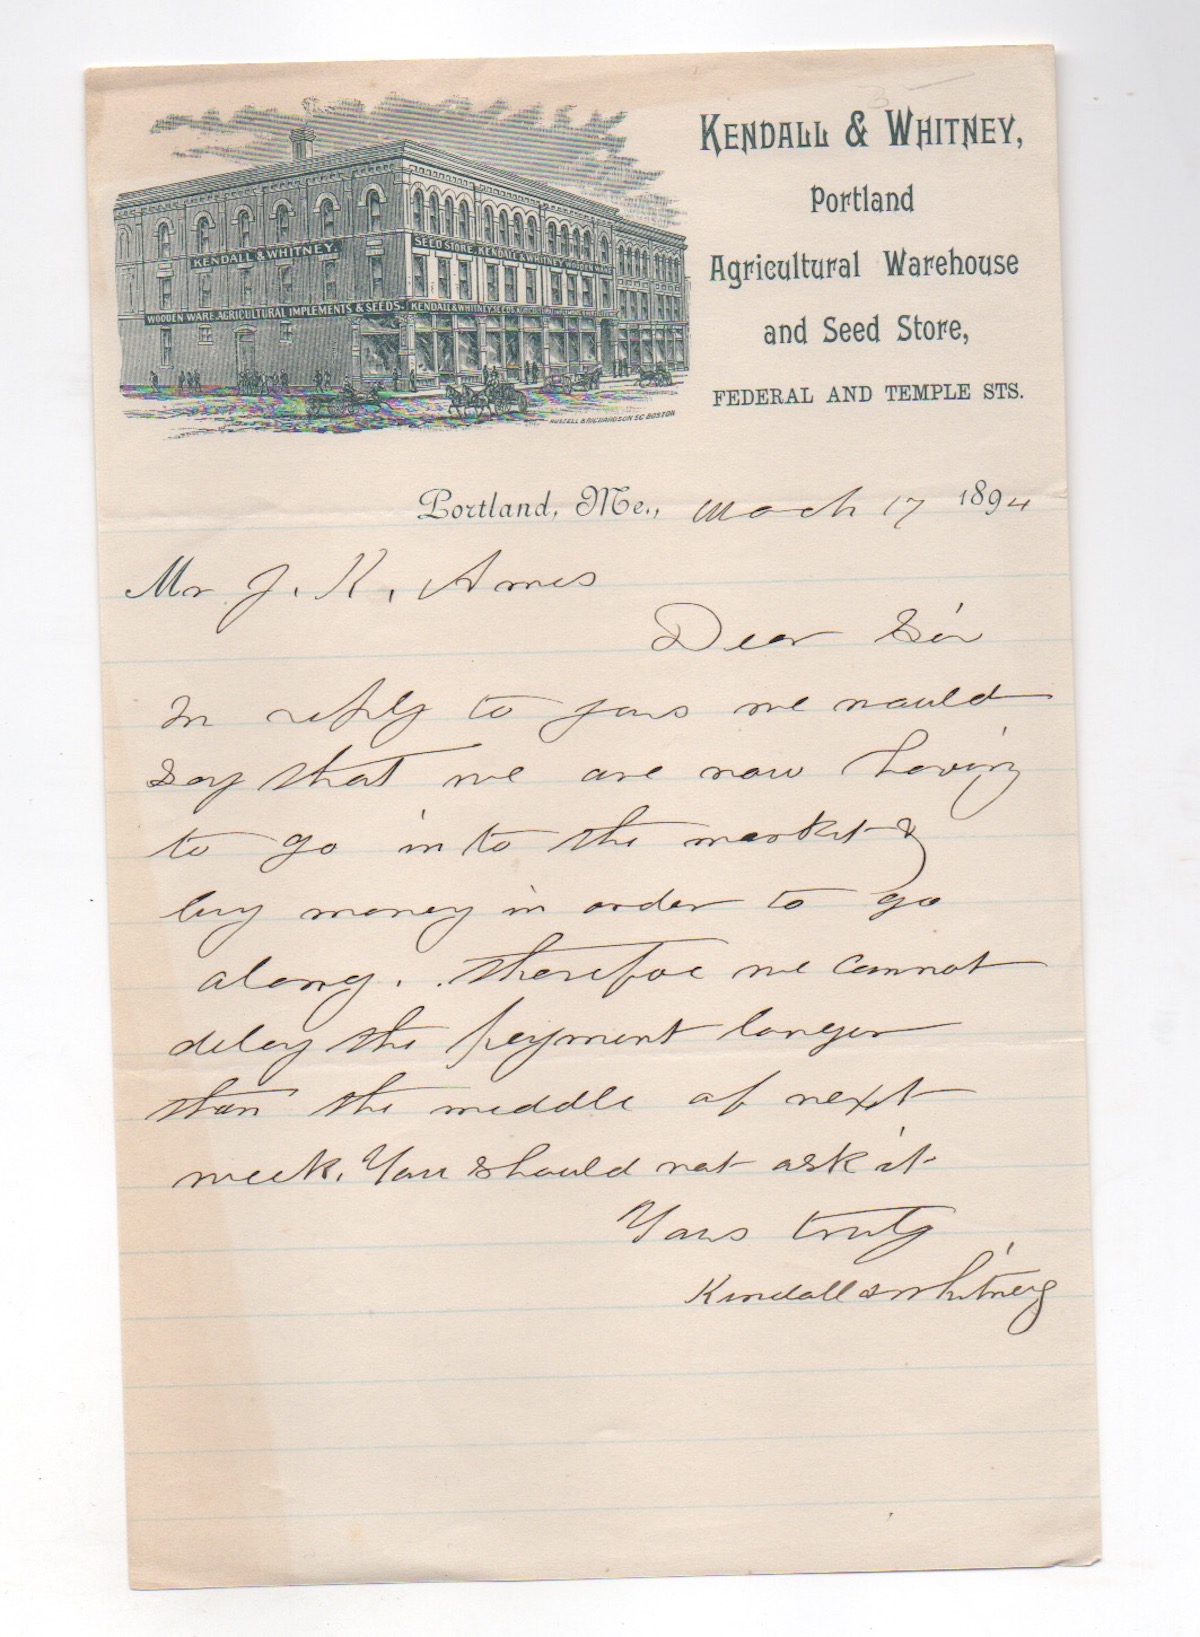 KENDALL & WHITNEY,
Portland
Agricultural Warehouse
and Seed Store,
FEDERAL AND TEMPLE STS.
KENDALL & WHITNEY.
WOODEN WARE, AGRICULTURAL IMPLEMENTS & SEEDS.
SEED STORE, KENDALL & WHITNEY, WOODEN WARE
KENDALL & WHITNEY, SEEDS, AGRICULTURAL IMPLEMENTS
RUSSELL & RICHARDSON SC BOSTON
Portland, Me., March 17 1894
Mr J. K. Ames
Dear Sir
In reply to yours we would
say that we are now having
to go in to the market &
buy money in order to go
along. therefore we cannot
delay the payment longer
than the middle of next
week. You should not ask it
Yours truly
Kendall & Whitney